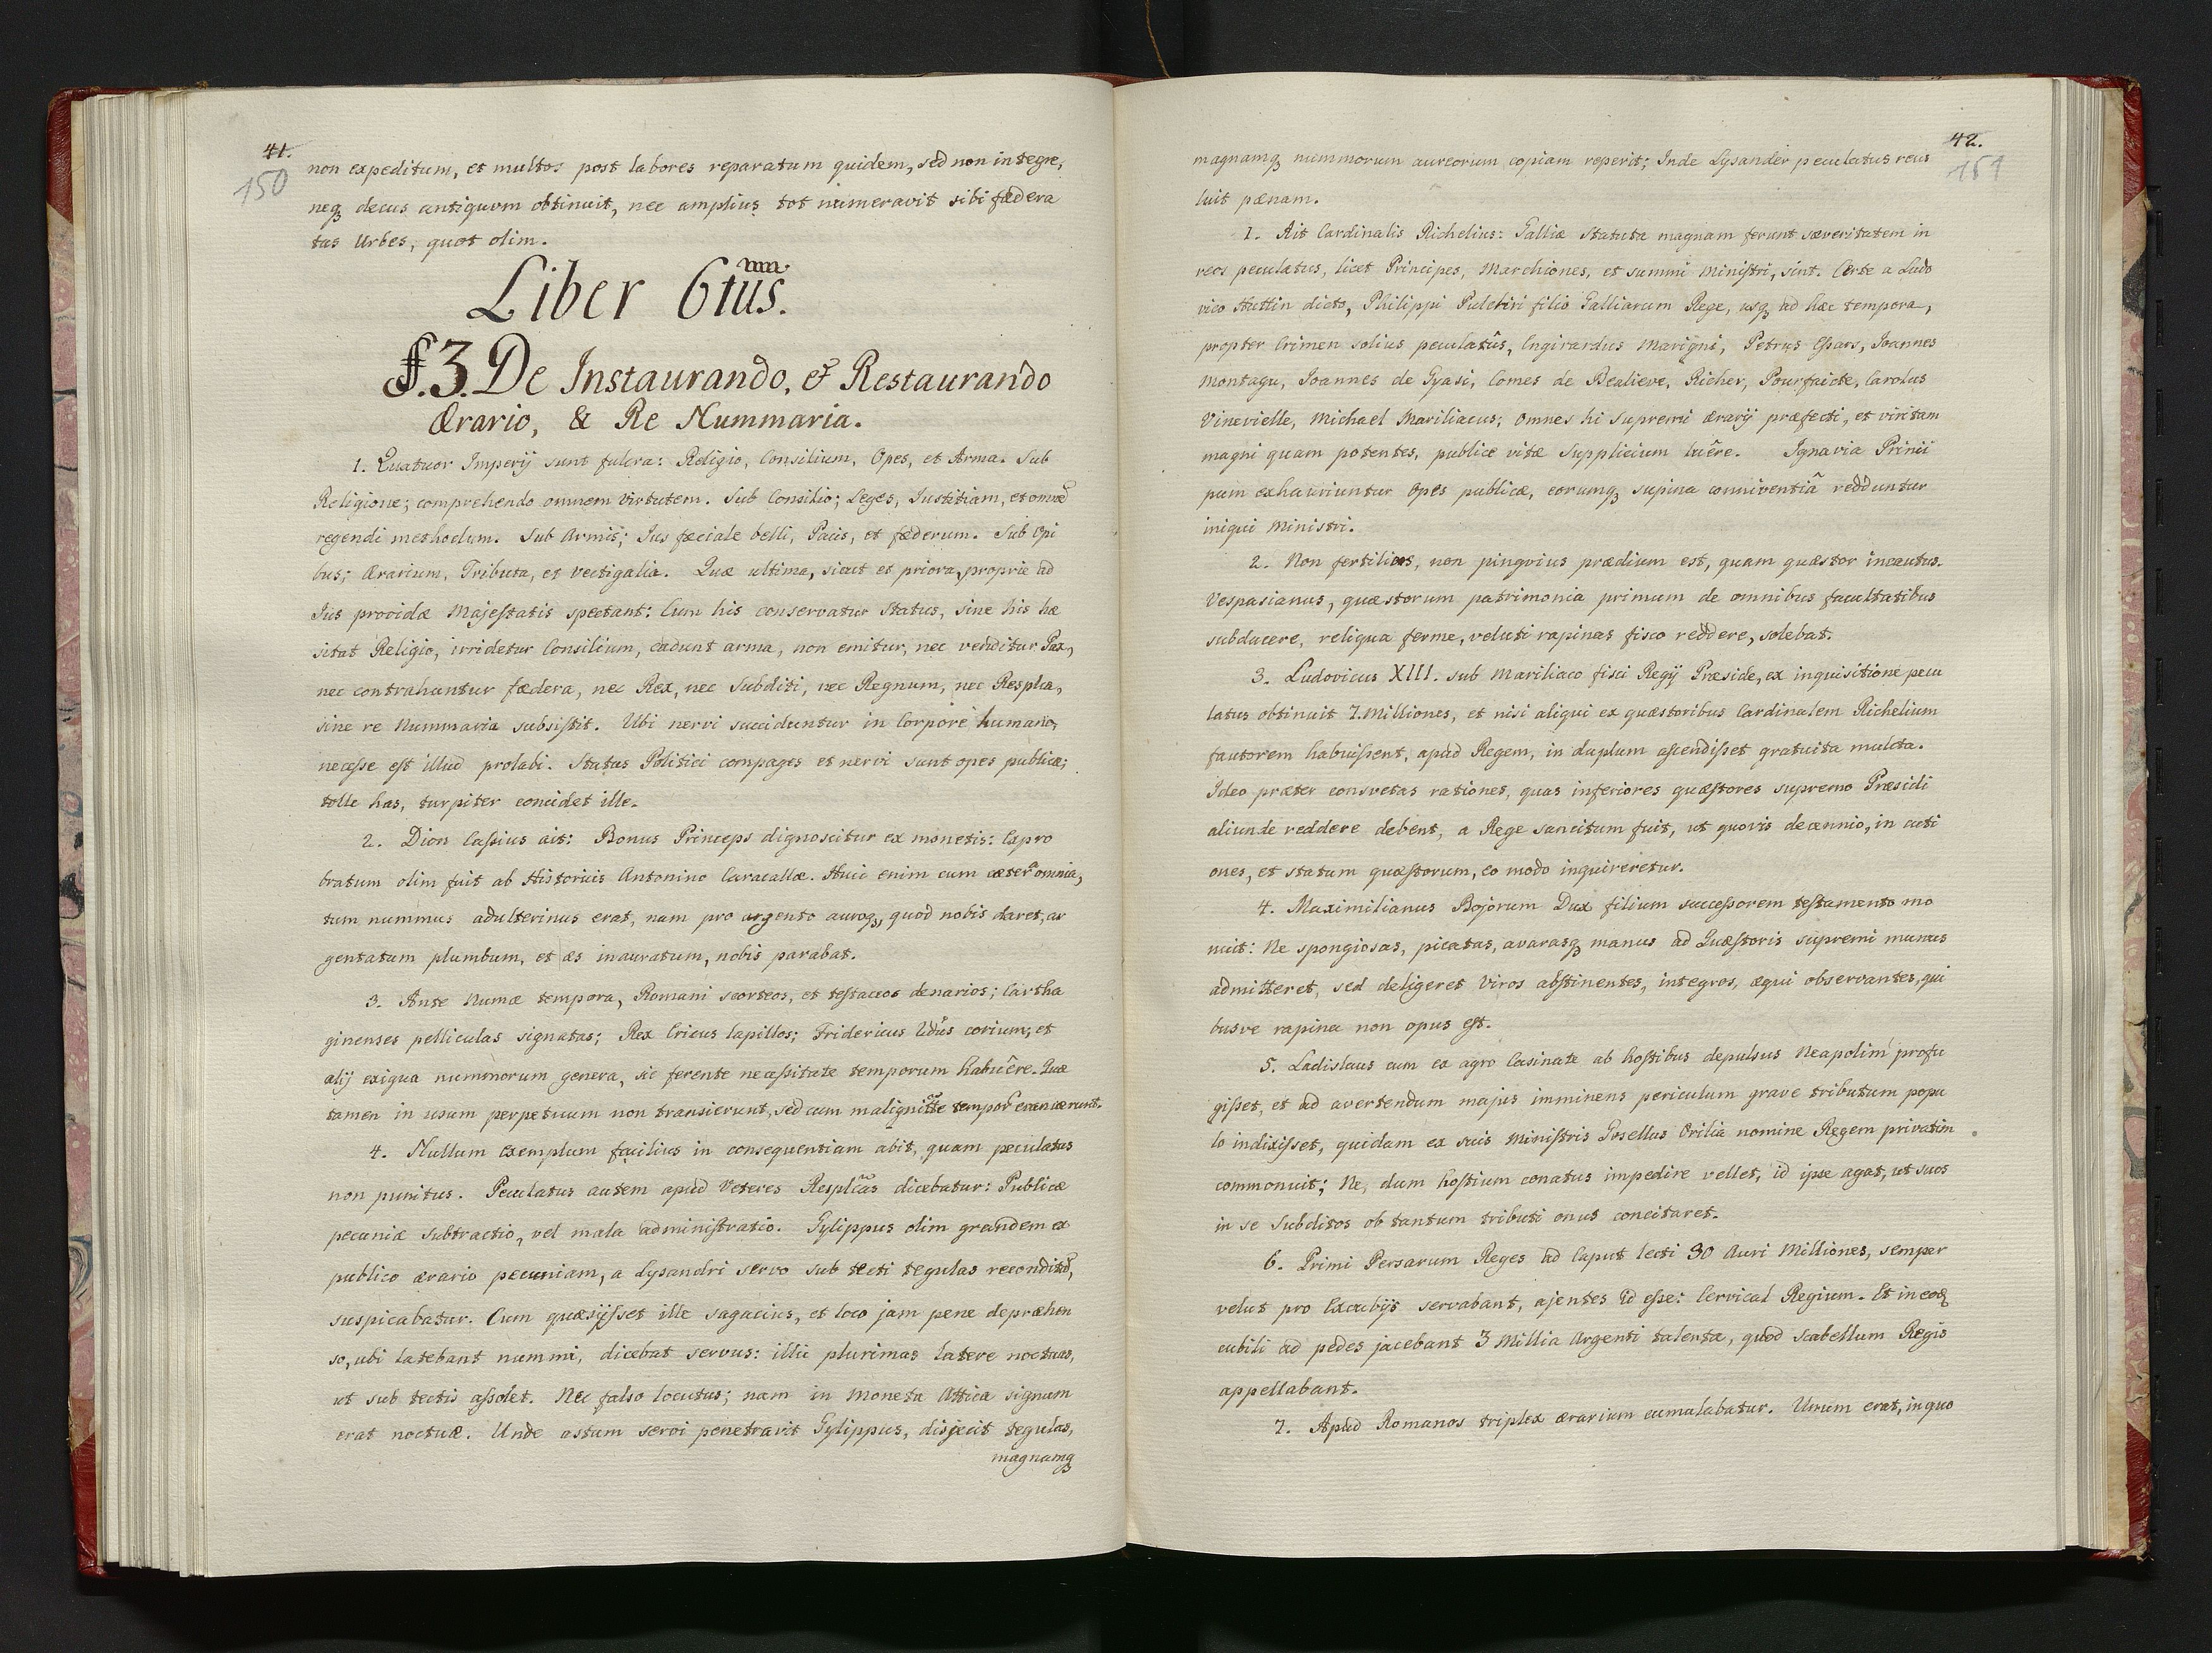 41.
150
non expeditum, et multos post labores reparatum quidem, sed non integre,
neq₃ decus antiquom obtinuit, nec amplius tot numeravit sibi fædera
tas Urbes, quot olim.
Liber 6tus.
§.3. De Instaurando, & Restaurando
Ærario, & Re Nummaria.
1. Quatuor Imperij sunt fulcra: Religio, Consilium, Opes, et Arma. Sub
Religione; comprehendo omnem virtutem. Sub Consilio; Leges, Justitiam, et omnē
regendi methodum. Sub Armis; Jus fæciale belli, Pacis, et fæderum. Sub Opi
bus; Ærarium, Tributa, et vectigalia. Quæ ultima, sicut et priora, proprie ad
Jus providæ Majestatis spectant: Cum his conservatur Status, sine his hæ
sitat Religio, irridetur Consilium, cadunt arma, non emitur, nec venditur Pax,
nec contrahuntur fædera, nec Rex, nec Subditi, nec Regnum, nec Resplca,
sine re Nummaria subsistit. Ubi nervi succiduntur in Corpore humano,
necesse est illud prolabi. Status Politici compages et nervi sunt opes publicæ;
tolle has, turpiter concidet ille.
2. Dion Cassius ait: Bonus Princeps dignoscitur ex monetis: Expro
bratum olim fuit ab Historicis Antonino Caracallæ. Huic enim cum cæterā omnia,
tum nummus adulterinus erat, nam pro argento auroq₃, quod nobis daret, ar
gentatum plumbum, et æs inauratum, nobis parabat.
3. Ante Numæ tempora, Romani scorteos, et testaceos denarios; Cartha
ginenses pelliculas signatas; Rex Ericus lapillos; Fridericus 2dus corium; et
alij exigua nummorum genera, sic ferente necessitate temporum habuêre. Quæ
tamen in usum perpetuum non transierunt, sed cum malignitte tempor evanuerunt.
4. Nullum exemplum facilius in consequentiam abit, quam peculatus
non punitus. Peculatus autem apud Veteres Resplcas dicebatur: Publicæ
pecuniæ subtractio, vel mala administratio. Gylippus olim grandem ex
publico ærario pecuniam, a Lysandri servo sub tecti tegulas reconditā,
suspicabatur. Cum quæsijsset ille sagacius, et loco jam pene depræhen
so, ubi latebant nummi, dicebat servus: illic plurimas latere noctuas,
ut sub tectis assolet. Nec falso locutus; nam in Moneta Attica signum
erat noctuæ. Unde astum servi penetravit Gylippus, disjecit tegulas,
magnamq₃
42.
151
magnamq₃ nummorum aureorum copiam reperit; Inde Lysander peculatus reus
luit pænam.
1. Ait Cardinalis Richelius: Galliæ Statuta magnam ferunt sæveritatem in
reos peculatus, licet Principes, Marchiones, et summi Ministri, sint. Certe a Ludo
vico Huttin dicto, Philippi Pulchri filio Galliarum Rege, usq₃ ad hæc tempora,
propter Crimen solius peculatûs, Engirardus Marigni, Petrus Essars, Joannes
Montagu, Joannes de Gyasi, Comes de Bealieve, Richer, Pourfaicte, Carolus
Vinevielle, Michael Mariliacus; omnes hi Supremi ærarij præfecti, et viri tam
magni quam potentes, publice vitæ Supplicium luêre. Ignavia Princi
pum exhauriuntur Opes publicæ, eorumq₃ supina conniventiâ redduntur
iniqui Ministri.
2. Non fertilius, non pingvius prædium est, quam quæstor incautus.
Vespasianus, quæstorum patrimonia primum de omnibus facultatibus
subducere, reliqua ferme, veluti rapinas fisco reddere, solebat.
3. Ludovicus XIII. sub Mariliaco fisci Regij Præside, ex inquisitione pecu
latus obtinuit 7. Milliones, et nisi aliqui ex quæstoribus Cardinalem Richelium
fautorem habuissent, apud Regem, in duplum ascendisset gratuita mulcta.
Ideo præter consvetas rationes, quas inferiores quæstores supremo Præsidi
aliunde reddere debent, a Rege sancitum fuit, ut quovis decennio, in acti
ones, et statum quæstorum, eo modo inquireretur.
4. Maximilianus Bojorum Dux filium successorem testamento mo
nuit: Ne spongiosas, picatas, avarasq₃ manus ad Quæstoris supremi munus
admitteret, sed deligeret Viros abstinentes, integros, æqui observantes, qui
busve rapina non opus est.
5. Ladislaus cum ex agro Casinate ab hostibus depulsus Neapolim profu
gisset, et ad avertendum majus imminens periculum grave tributum popu
lo indixisset, quidam ex suis Ministris Gosellus Orilia nomine Regem privatim
commonuit; Ne, dum hostium conatus impedire vellet, id ipse agat, ut suos
in se Subditos ob tantum tributi onus concitaret.
6. Primi Persarum Reges ad Caput lecti 30 Auri Milliones, semper
velut pro Excubijs servabant, ajentes id esse: Cervical Regium. Et in eoq₃
cubili ad pedes jacebant 3 Millia Argenti talenta, quod scabellum Regis
appellabant.
7. Apud Romanos triplex ærarium cumulabatur. Unum erat, in quo